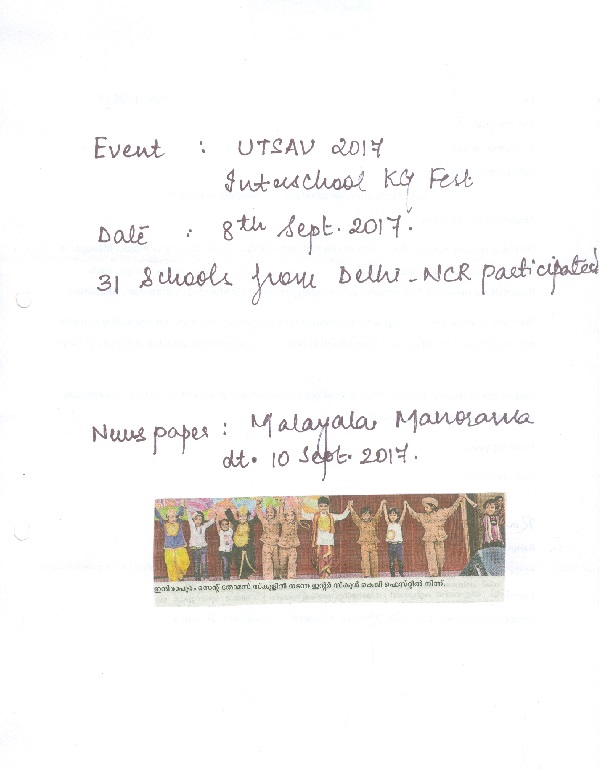 Event : UTSAV 2017
Interschool KG Fest
Date : 8th Sept. 2017.
31 Schools from Delhi-NCR participated
News paper : Malayala Manorama
dt. 10 Sept. 2017.
ഇന്ദിരാപുരം സെന്റ് തോമസ് സ്കൂളിൽ നടന്ന ഇന്റർ സ്കൂൾ കെജി ഫെസ്റ്റിൽ നിന്ന്.